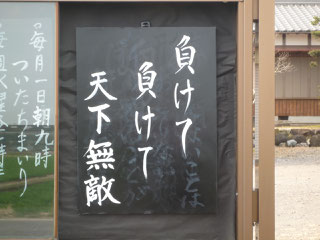 負けて
負けて
天下無敵
毎月一日朝九時
ついたちまいり